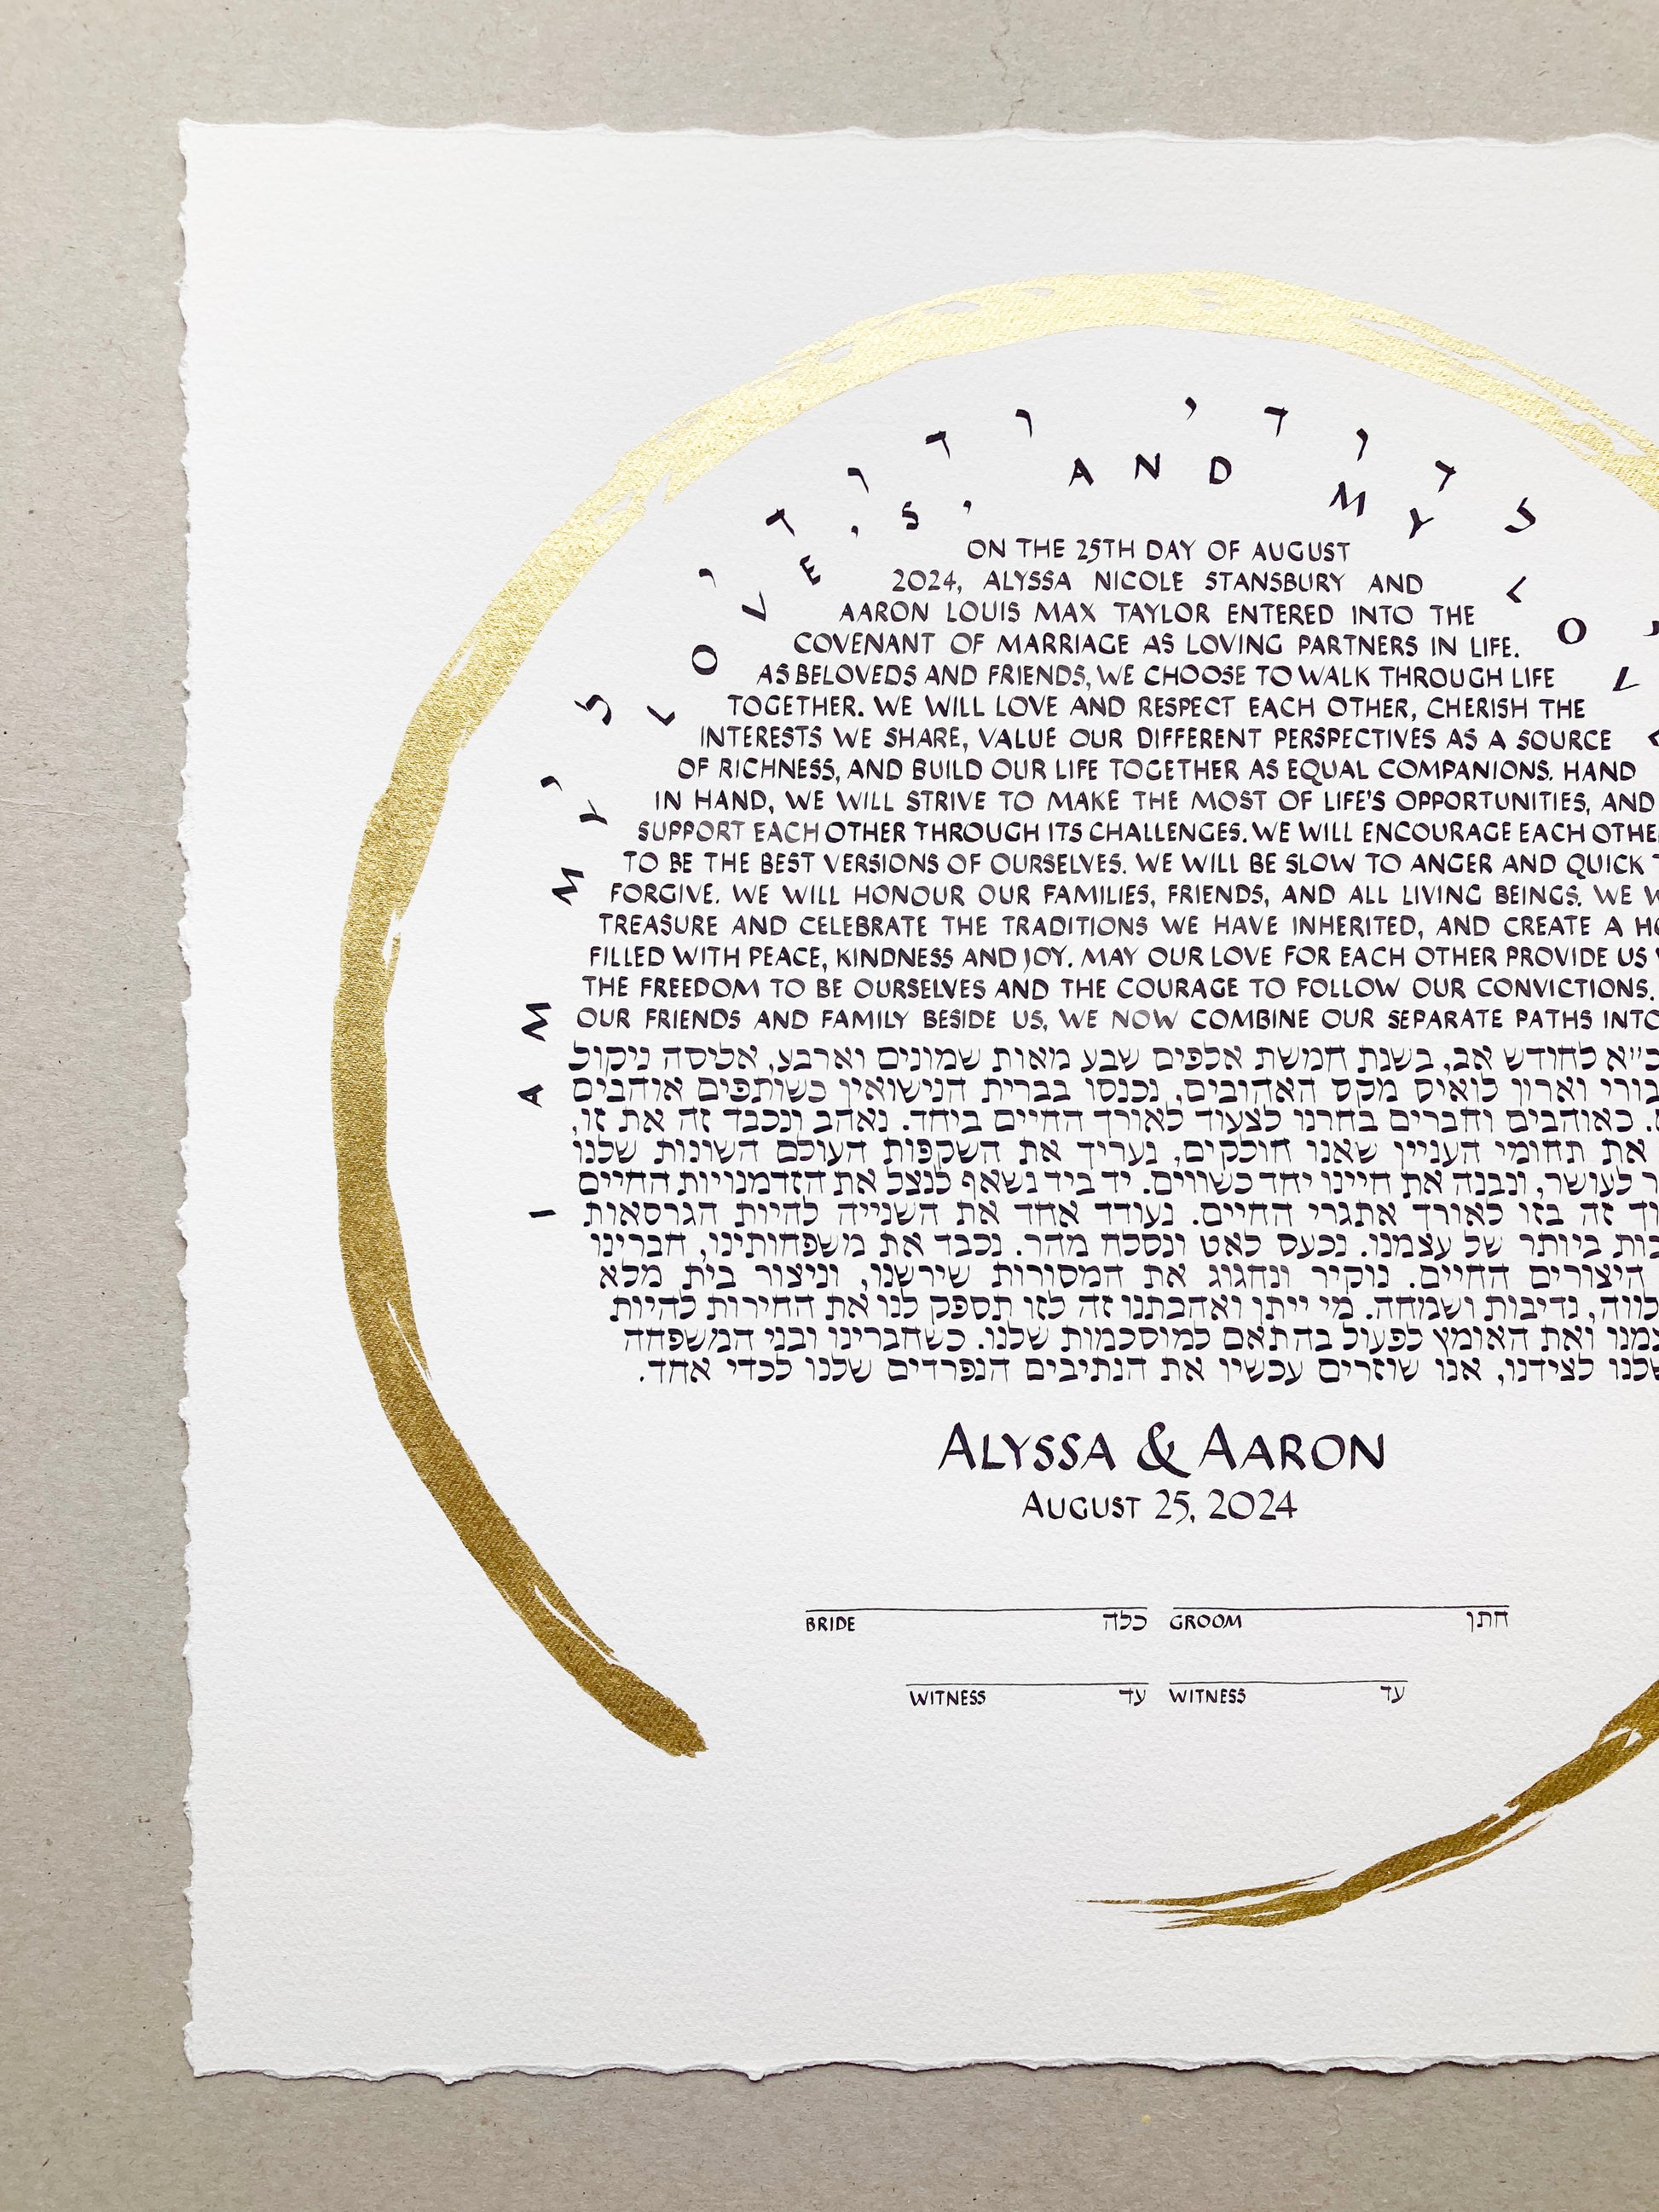 לדודי ודודי לי
I AM MY LOVE'S, AND MY LOV
ON THE 25TH DAY OF AUGUST
2024, ALYSSA NICOLE STANSBURY AND
AARON LOUIS MAX TAYLOR ENTERED INTO THE
COVENANT OF MARRIAGE AS LOVING PARTNERS IN LIFE.
AS BELOVEDS AND FRIENDS, WE CHOOSE TO WALK THROUGH LIFE
TOGETHER. WE WILL LOVE AND RESPECT EACH OTHER, CHERISH THE
INTERESTS WE SHARE, VALUE OUR DIFFERENT PERSPECTIVES AS A SOURCE
OF RICHNESS, AND BUILD OUR LIFE TOGETHER AS EQUAL COMPANIONS. HAND
IN HAND, WE WILL STRIVE TO MAKE THE MOST OF LIFE'S OPPORTUNITIES, AND
SUPPORT EACH OTHER THROUGH ITS CHALLENGES. WE WILL ENCOURAGE EACH OTHE
TO BE THE BEST VERSIONS OF OURSELVES. WE WILL BE SLOW TO ANGER AND QUICK
FORGIVE. WE WILL HONOUR OUR FAMILIES, FRIENDS, AND ALL LIVING BEINGS. WE
TREASURE AND CELEBRATE THE TRADITIONS WE HAVE INHERITED, AND CREATE A HO
FILLED WITH PEACE, KINDNESS AND JOY. MAY OUR LOVE FOR EACH OTHER PROVIDE US
THE FREEDOM TO BE OURSELVES AND THE COURAGE TO FOLLOW OUR CONVICTIONS.
OUR FRIENDS AND FAMILY BESIDE US, WE NOW COMBINE OUR SEPARATE PATHS INTO
כ״א לחודש אב, בשנת חמשת אלפים שבע מאות שמונים וארבע, אליסה ניקול
בורי וארון לואיס מקס האהובים, נכנסו בברית הנישואין כשותפים אוהבים
כאוהבים וחברים בחרנו לצעוד לאורך החיים ביחד. נאהב ונכבד זה את זו,
את תחומי העניין שאנו חולקים, נעריך את השקפות העולם השונות שלנו
לעושר, ונבנה את חיינו יחד כשווים. יד ביד נשאף לנצל את הזדמנויות החיים
זה בזו לאורך אתגרי החיים. נעודד אחד את השנייה להיות הגרסאות
ביותר של עצמנו. נכעס לאט ונסלח מהר. נכבד את משפחותינו, חברינו
היצורים החיים. נוקיר ונחגוג את המסורות שירשנו, וניצור בית מלא
נדיבות ושמחה. מי ייתן ואהבתנו זה לזו תספק לנו את החירות להיות
ואת האומץ לפעול בהתאם למוסכמות שלנו. כשחברינו ובני המשפחה
לצידנו, אנו שוזרים עכשיו את הנתיבים הנפרדים שלנו לכדי אחד.
ALYSSA & AARON
AUGUST 25, 2024
BRIDE כלה GROOM חתן
WITNESS עד WITNESS עד